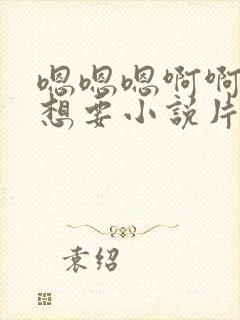 嗯嗯嗯啊啊
想要小说片
袁绍